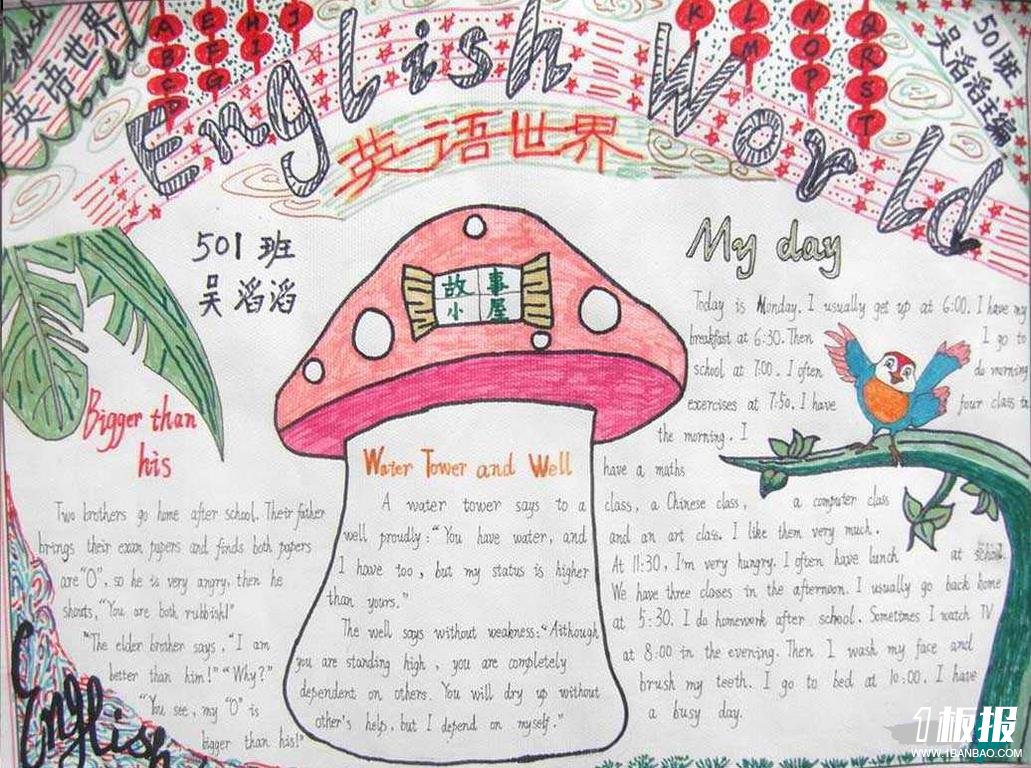 English
英语世界
World
A
B
C
D
E
F
G
H
I
J
K
L
M
N
O
P
Q
R
S
T
501班
吴滔滔主编
English World
英语世界
501班
吴滔滔
故事
小屋
Bigger than
his
Two brothers go home after school. Their father
brings their exam papers and finds both papers
are "0", so he is very angry, then he
shouts, "You are both rubbish!"
"The elder brother says, "I am
better than him!" "Why?"
"You see, my "0" is
bigger than his!"
English
Water Tower and Well
A water tower says to a
well proudly: "You have water, and
I have too, but my status is higher
than yours."
The well says without weakness: "Although
you are standing high, you are completely
dependent on others. You will dry up without
other's help, but I depend on myself."
My day
Today is Monday. I usually get up at 6:00. I have my
breakfast at 6:30. Then I go to
school at 7:00. I often do morning
exercises at 7:50. I have four class in
the morning. I
have a maths
class, a Chinese class, a computer class
and an art class. I like them very much.
At 11:30, I'm very hungry. I often have lunch at school.
We have three classes in the afternoon. I usually go back home
at 5:30. I do homework after school. Sometimes I watch TV
at 8:00 in the evening. Then I wash my face and
brush my teeth. I go to bed at 10:00. I have
a busy day.
1板报
WWW.1BANBAO.COM